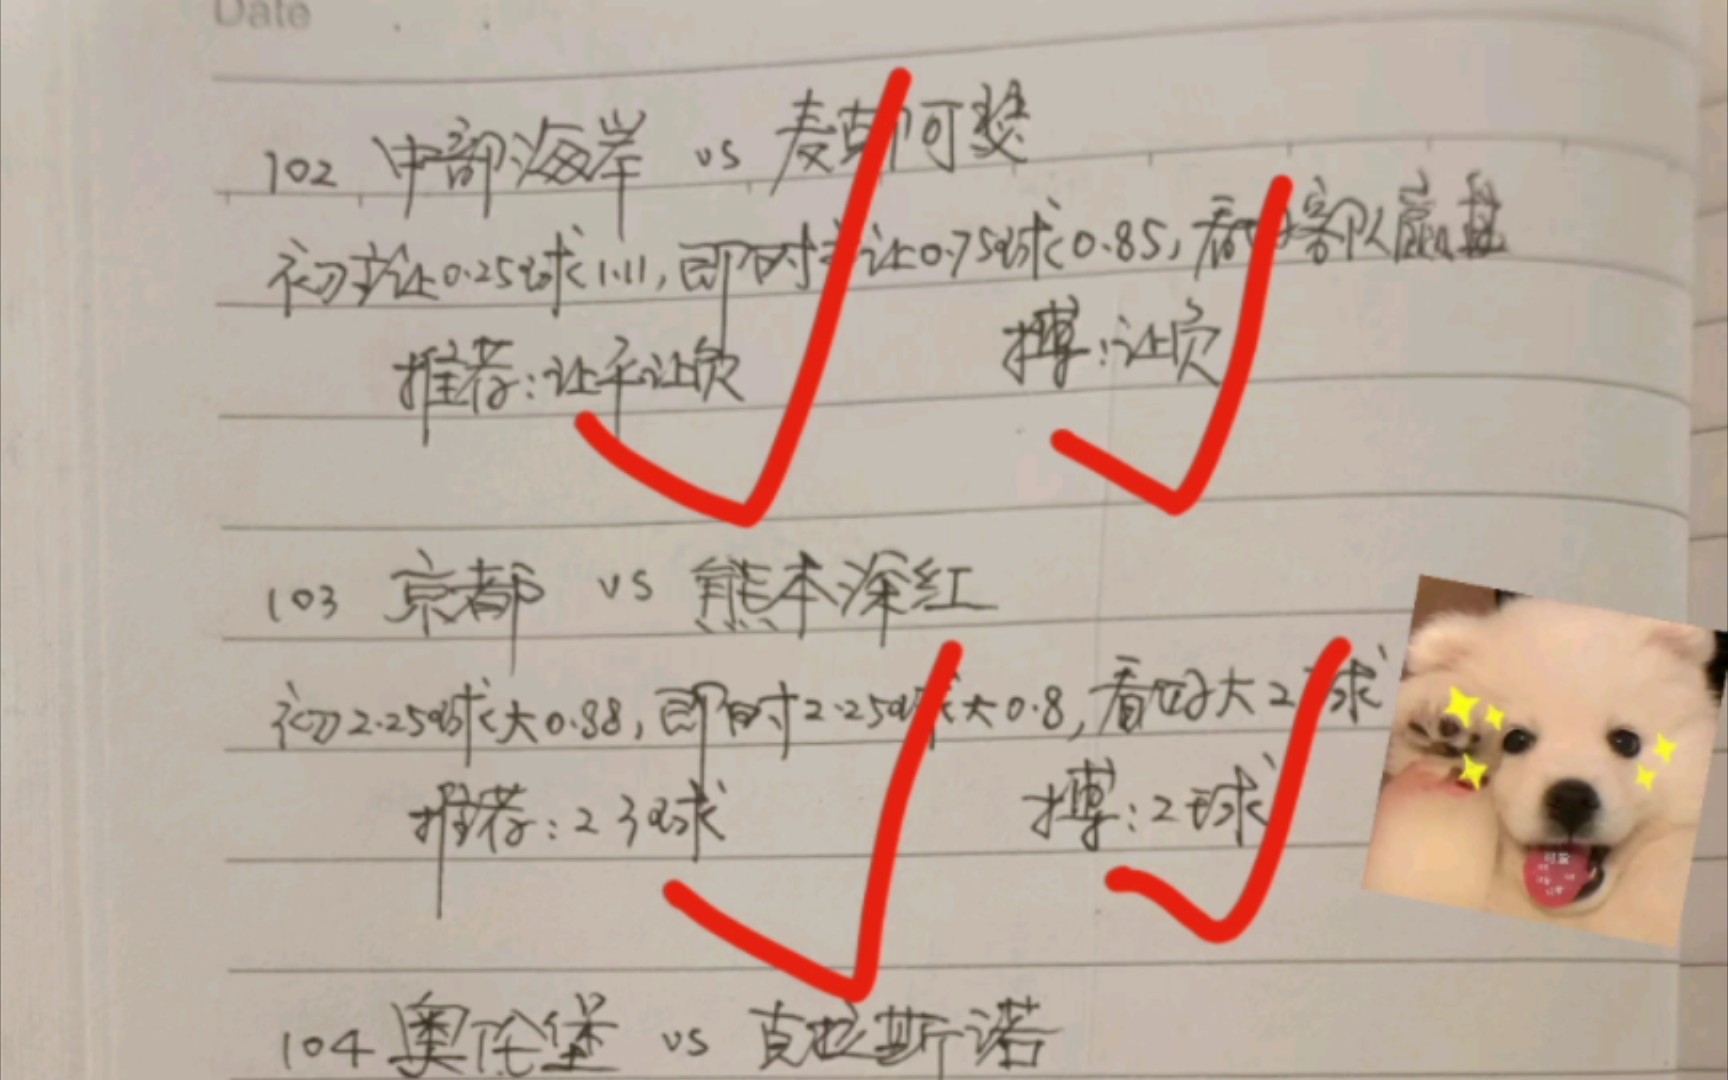 Date
102 中部海岸 vs 麦克阿瑟
初主让0.25球1.11,即时主让0.75球0.85,看好客队赢盘
推荐:让平让负 搏:让负
103 京都 vs 熊本深红
初2.25球大0.88,即时2.25球大0.8,看好大2球
推荐:2 3球 搏:2球
104 奥伦堡 vs 克拉斯诺